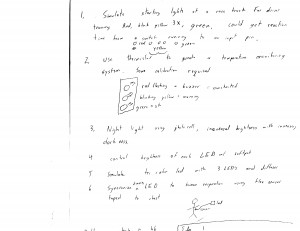 1. Simulate starting light of a race track for driver
training Red, black yellow 3x, green, could get reaction
time from a switch running to an input pin.
red green
yellow
2. Use thermistor to operate a temperature monitoring
system. Some calibration required
red flashing + buzzer = overheated
blinking yellow = warning
green = ok
3. Night light using photocell, increased brightness with increasing
darkness
4 control brightness of each LED w/
5 Simulate color led with 3 LEDs and diffuser
6 Synchronize LED to human respiration using flex sensor
taped to chest